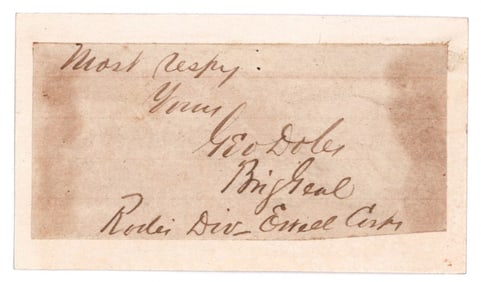 Most respy.
Yours
Geo Doles
Brig Genl
Rodes Div- Ewell Corps